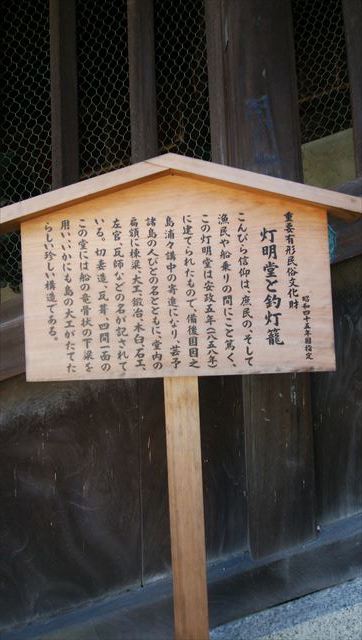 重要有形民俗文化財
昭和四十五年国指定
灯明堂と釣灯籠
こんぴら信仰は、庶民の、そして
漁民や船乗りの間にことに篤く、
この灯明堂は安政五年(一八五八)
に建てられたもので、備後国因之
島浦々講中の寄進になり、芸予
諸島の人びとの名とともに室内の
扁額に棟梁、大工鍛冶、木臼、石工、
左官、瓦師などの名が記されて
いる。切妻造、瓦葺、四間一面の
この堂には船の竜骨状の下梁を
用いいかにも島の大工がたてた
らしい珍しい構造である。